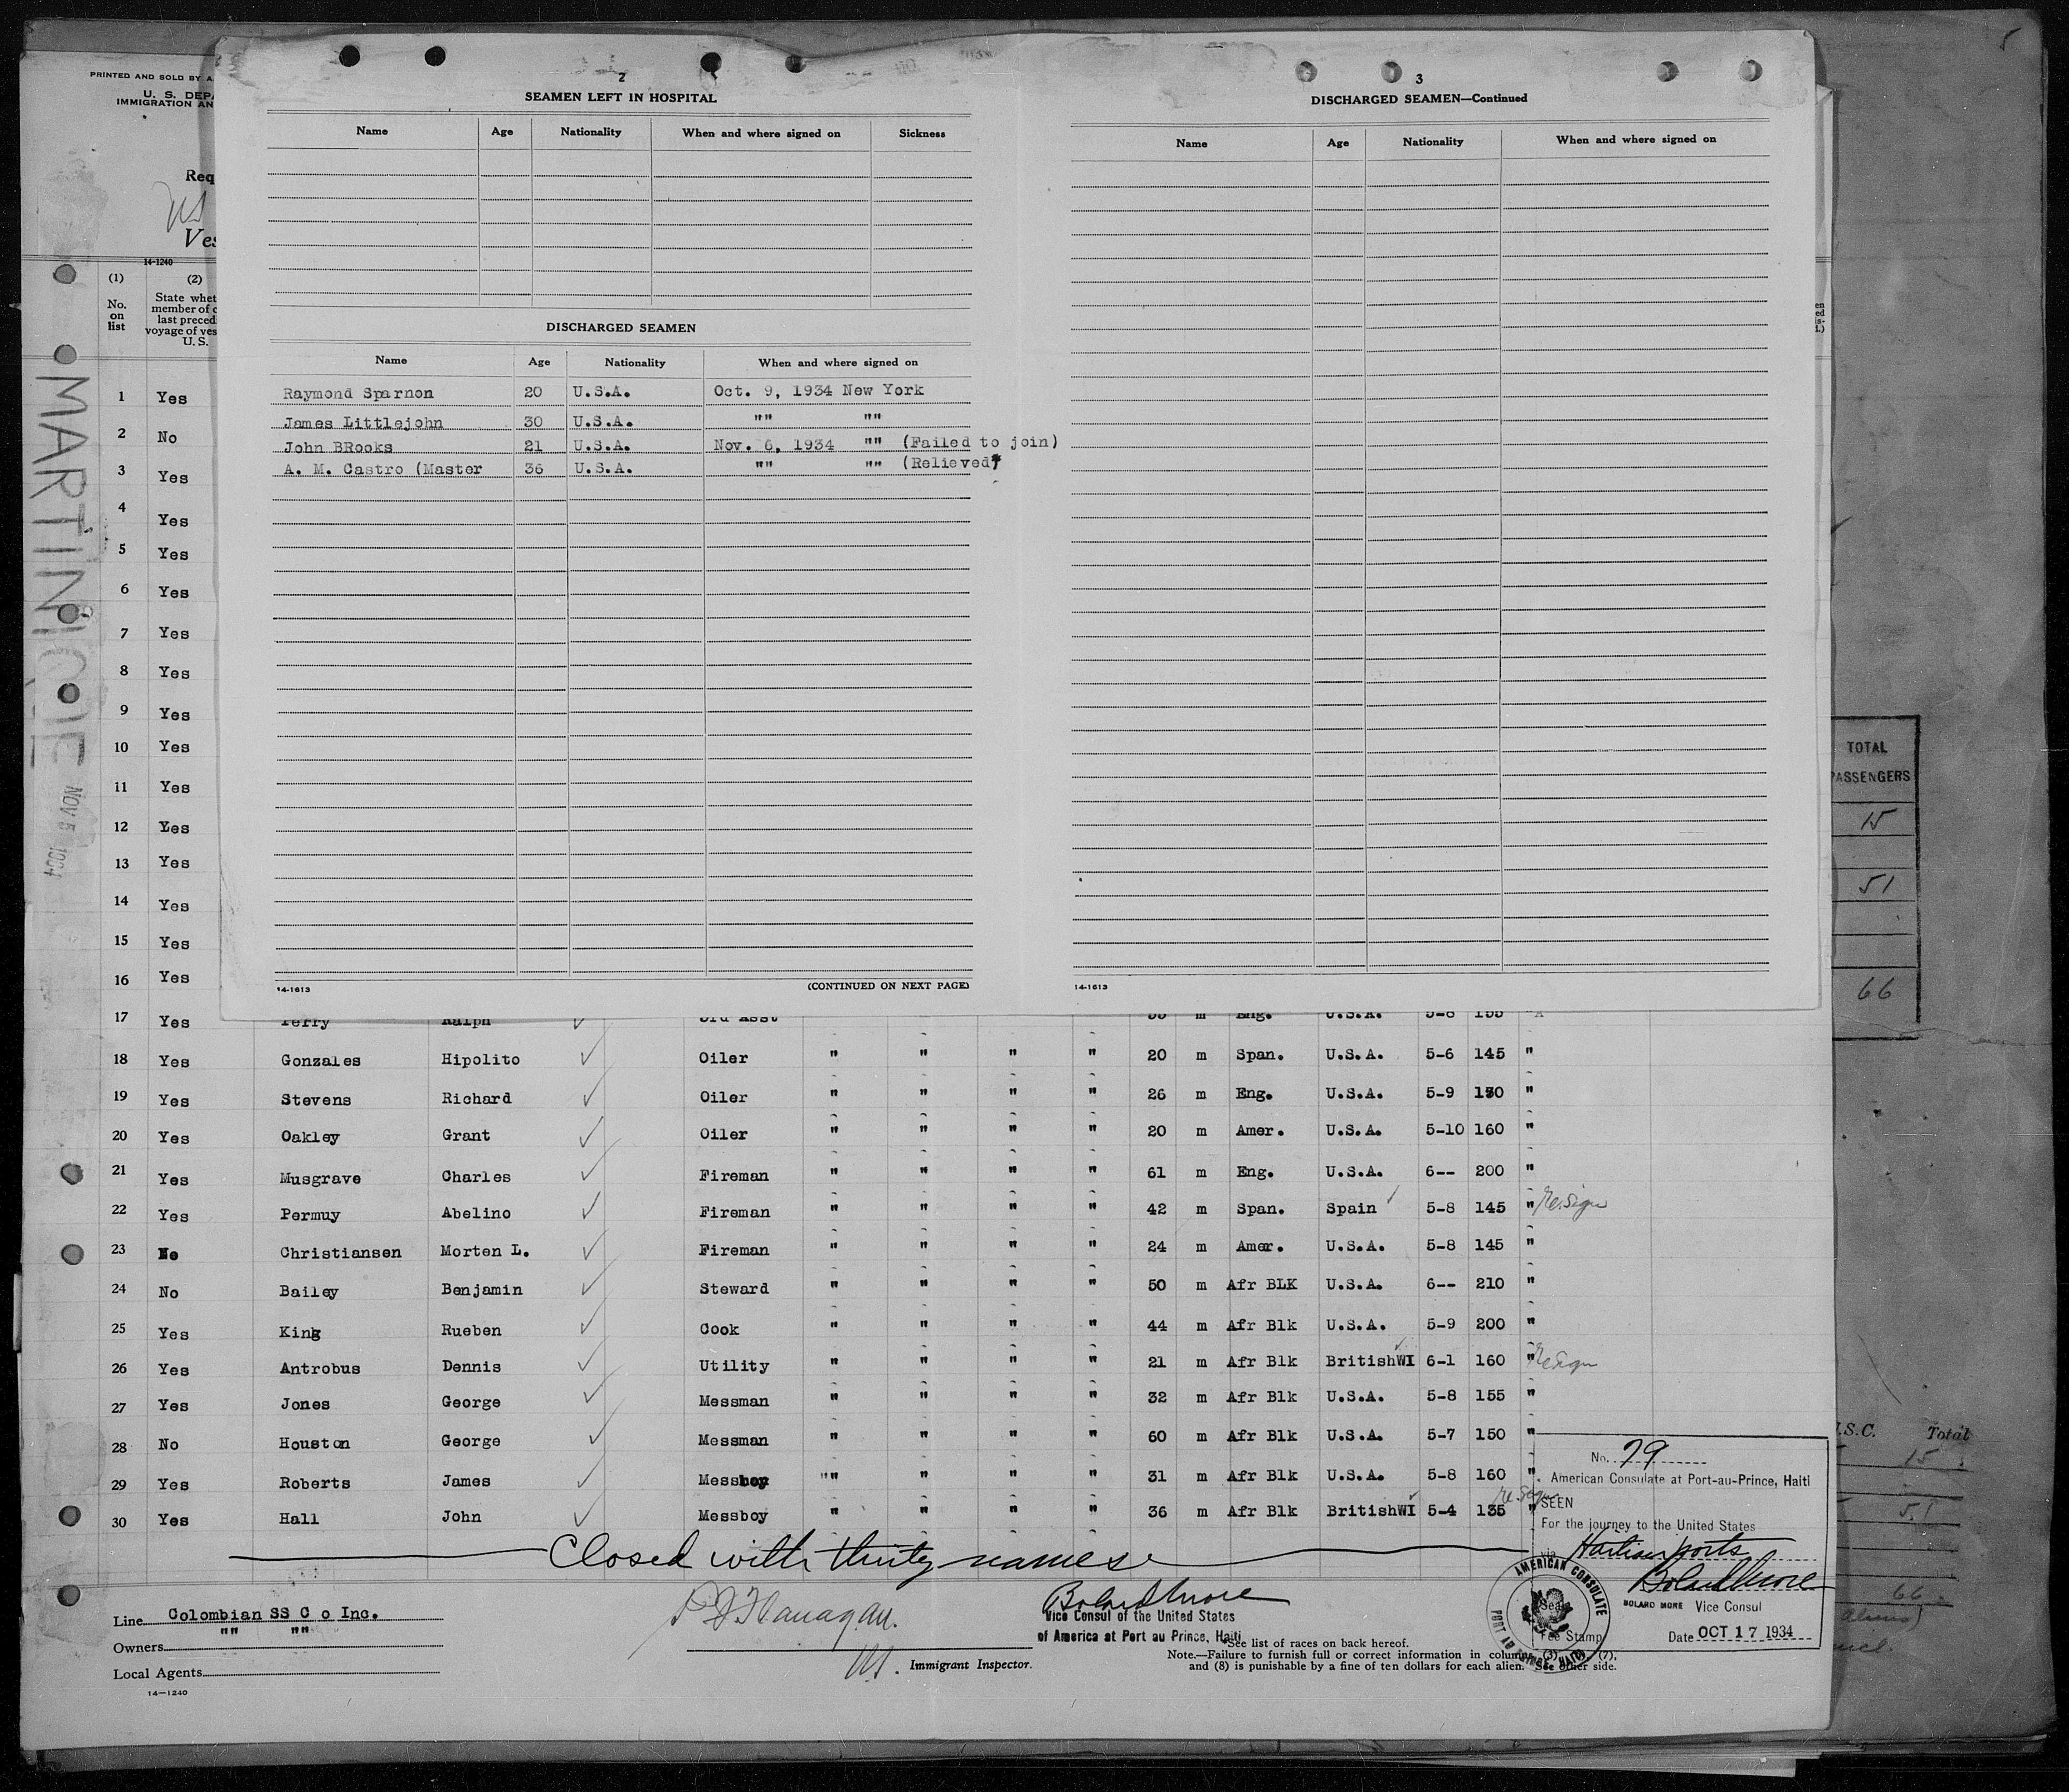 5
PRINTED AND SOLD BY
U. S. DEP
IMMIGRATION AN
Req
Ves
14-1240
(1) (2)
No. on list
State whet
member of c
last preced
voyage of ves
U. S.
MARTINIQUE
NOV 5 1934
2
SEAMEN LEFT IN HOSPITAL
Name Age Nationality When and where signed on Sickness
DISCHARGED SEAMEN
Name Age Nationality When and where signed on
Raymond Sparnon 20 U.S.A. Oct. 9, 1934 New York
James Littlejohn 30 U.S.A. "" ""
John BRooks 21 U.S.A. Nov. 6, 1934 "" (Failed to join)
A. M. Castro (Master 36 U.S.A. "" "" (Relieved)
14-1613
(CONTINUED ON NEXT PAGE)
3
DISCHARGED SEAMEN—Continued
Name Age Nationality When and where signed on
14-1613
1 Yes
2 No
3 Yes
4 Yes
5 Yes
6 Yes
7 Yes
8 Yes
9 Yes
10 Yes
11 Yes
12 Yes
13 Yes
14 Yes
15 Yes
16 Yes
17 Yes Perry Ralph 3rd Asst 35 m Eng. U.S.A. 5-8 155 "
18 Yes Gonzales Hipolito Oiler " " " " 20 m Span. U.S.A. 5-6 145 "
19 Yes Stevens Richard Oiler " " " " 26 m Eng. U.S.A. 5-9 130 "
20 Yes Oakley Grant Oiler " " " " 20 m Amer. U.S.A. 5-10 160 "
21 Yes Musgrave Charles Fireman " " " " 61 m Eng. U.S.A. 6-- 200 "
22 Yes Permuy Abelino Fireman " " " " 42 m Span. Spain 5-8 145 " Re.Sign
23 No Christiansen Morten L. Fireman " " " " 24 m Amer. U.S.A. 5-8 145 "
24 No Bailey Benjamin Steward " " " " 50 m Afr BLK U.S.A. 6-- 210 "
25 Yes King Rueben Cook " " " " 44 m Afr Blk U.S.A. 5-9 200 "
26 Yes Antrobus Dennis Utility " " " " 21 m Afr Blk BritishWI 6-1 160 " ReSign
27 Yes Jones George Messman " " " " 32 m Afr Blk U.S.A. 5-8 155 "
28 No Houston George Messman " " " " 60 m Afr Blk U.S.A. 5-7 150 "
29 Yes Roberts James Messboy "" " " " 31 m Afr Blk U.S.A. 5-8 160 "
30 Yes Hall John Messboy " " " " 36 m Afr Blk BritishWI 5-4 135 " Re.Sign
Closed with thirty names
Line Colombian SS C o Inc.
Owners "" ""
Local Agents
14—1240
P J Flanagan.
Immigrant Inspector.
Bolard More
Vice Consul of the United States
of America at Port au Prince, Haiti
*See list of races on back hereof.
Note.—Failure to furnish full or correct information in columns (3), (7),
and (8) is punishable by a fine of ten dollars for each alien. See other side.
No. 79
American Consulate at Port-au-Prince, Haiti
SEEN
For the journey to the United States
via Haitian ports
Bolard More
BOLARD MORE Vice Consul
Date OCT 17 1934
Seal
Fee Stamp
AMERICAN CONSULATE
PORT AU PRINCE, HAITI
TOTAL
PASSENGERS
15
51
66
.S.C. Total
15
51
66